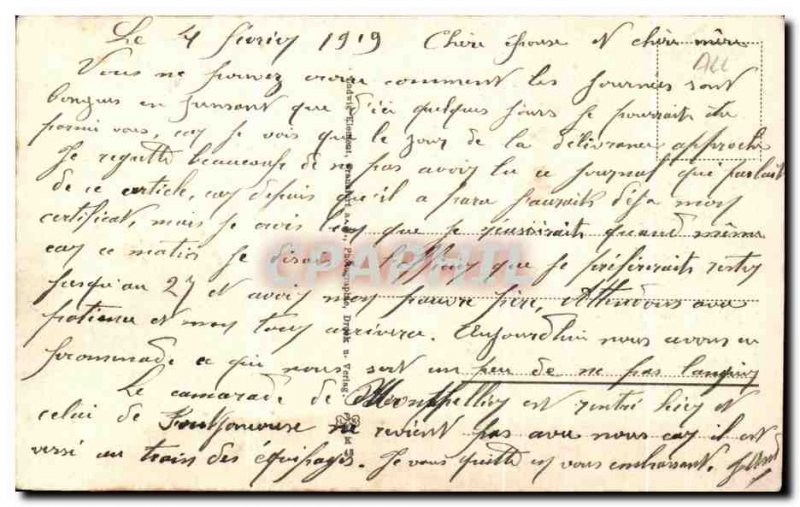 Le 4 février 1919 Chère épouse et chère mère
Vous ne pouvez croire comment les journées sont
longues en pensant que d'ici quelques jours je pourrais être
parmi vous, car je vois que le jour de la délivrance approche
Je regrette beaucoup de ne pas avoir lu ce journal qui parlait
de ce article, car depuis qu'il a paru j'aurais déjà mon
certificat, mais je crois que je réussirait quand même
car ce matin je disais à que je préférerait rester
jusqu'au 27 et avoir mon pauvre père, Attendons avec
patience et mon tout arrivera. Aujourd'hui nous avons eu
promenade ce qui nous sort un peu de ne pas languir
Le camarade de Montpellier est rentré hier et
celui de ne revient pas avec nous car il est
versé au train des équipages. Je vous quitte en vous embrassant.
ALL
Ludwig Klement, Frankfurt a. M., Photographie, Druck u. Verlag
CPAPHIL